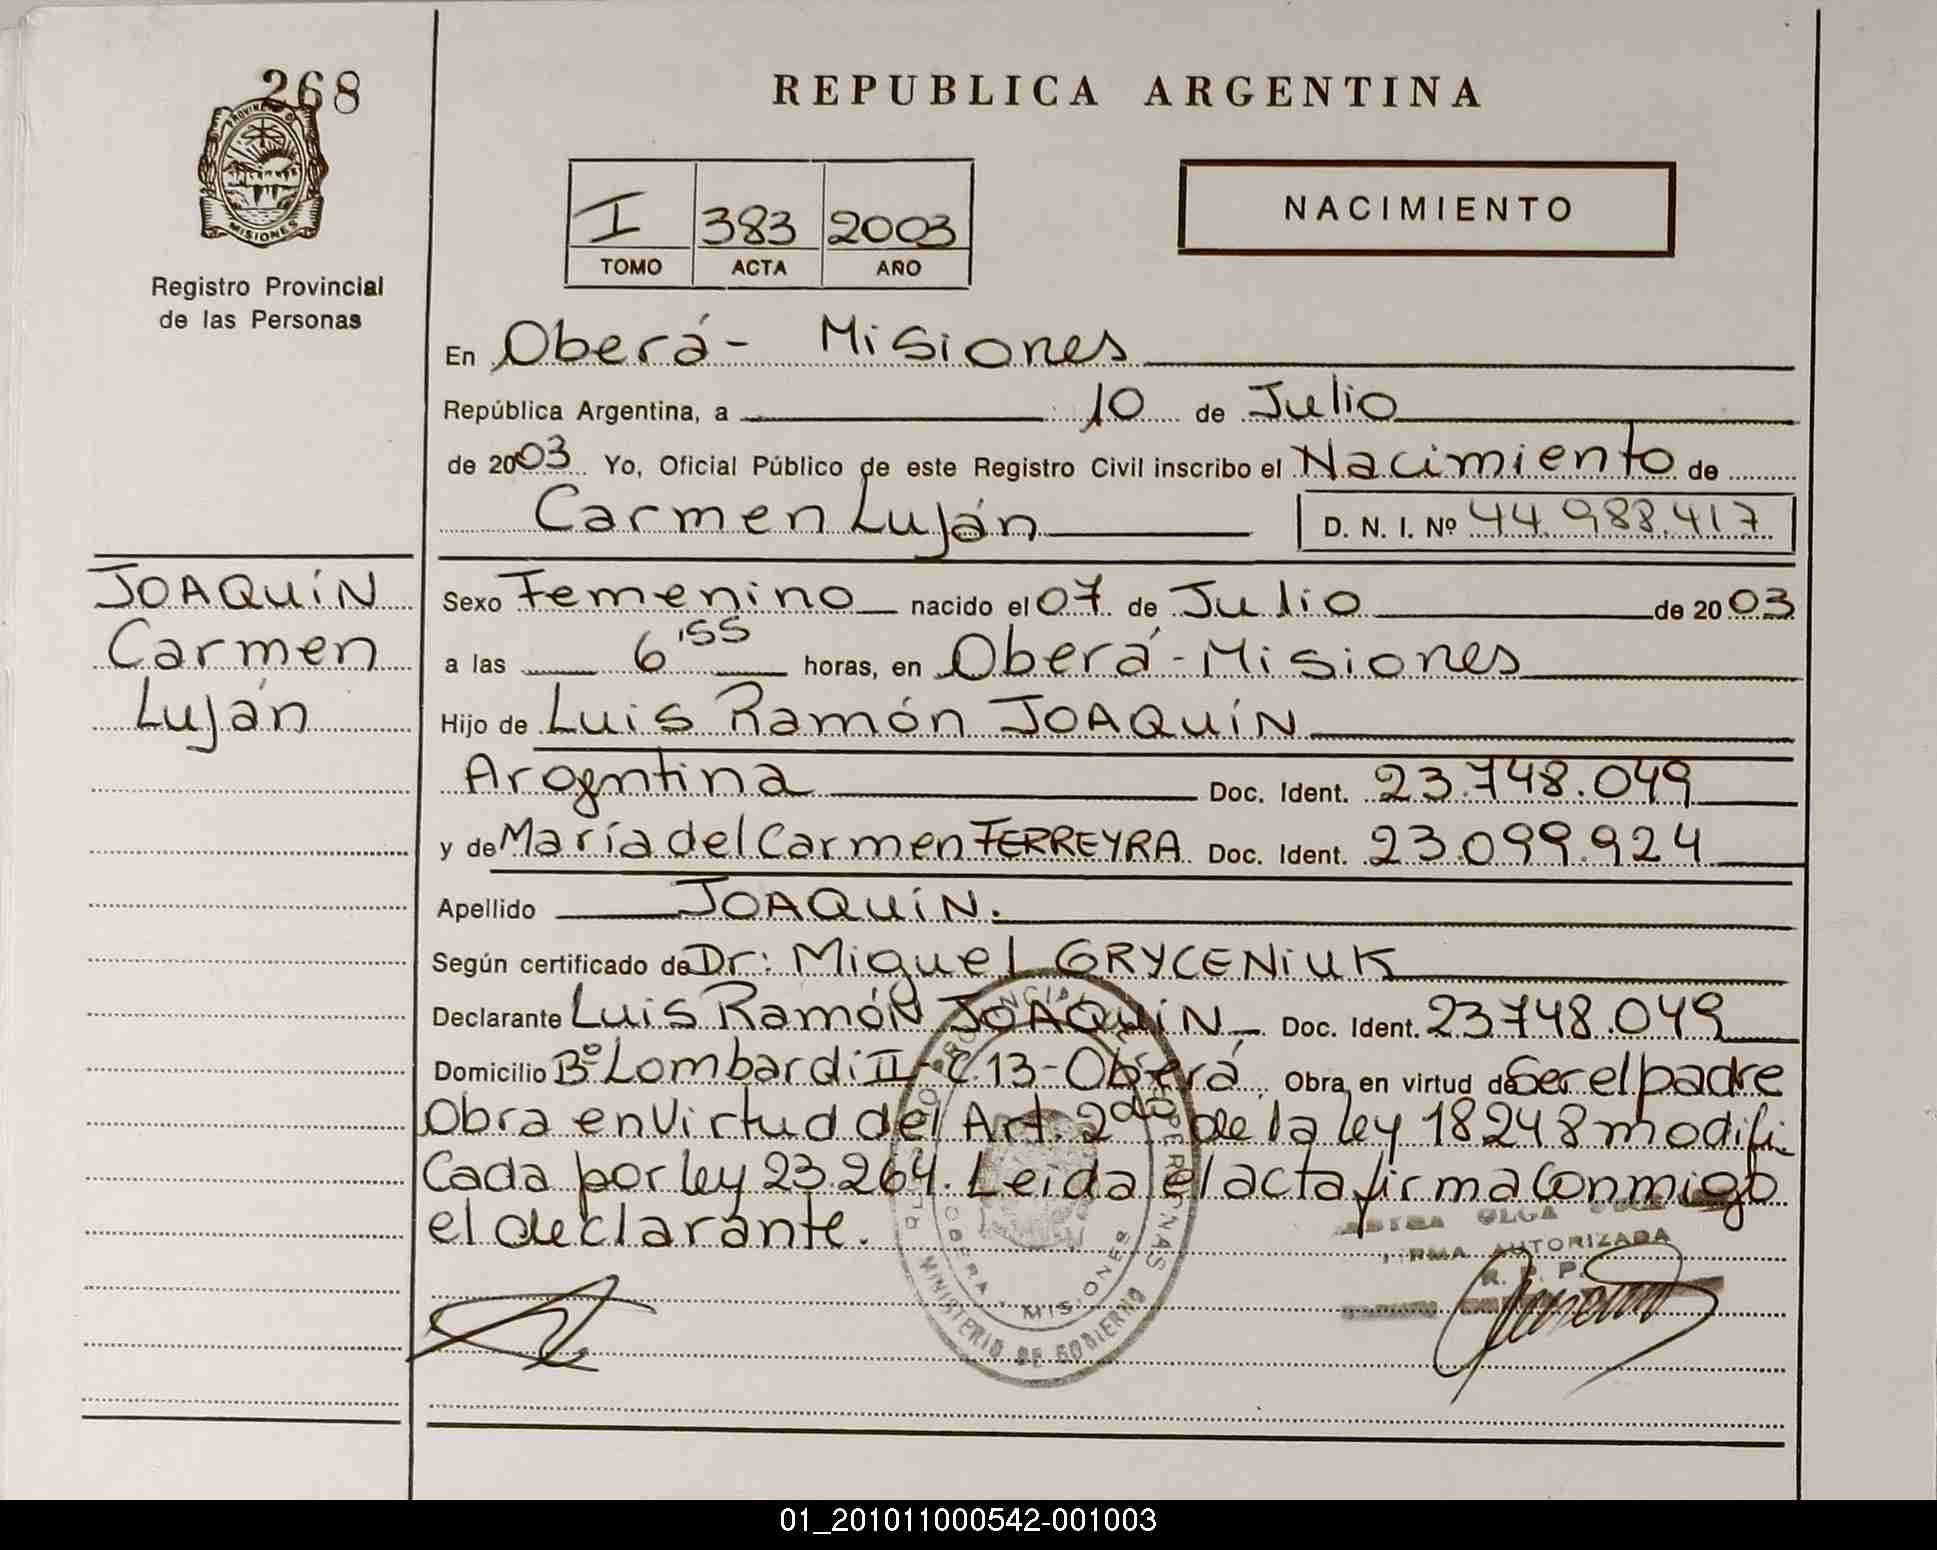 268
REPUBLICA ARGENTINA
PROVINCIA DE
MISIONES
Registro Provincial
de las Personas
I 383 2003
TOMO ACTA AÑO
NACIMIENTO
En Oberá - Misiones
República Argentina, a 10 de Julio
de 2003 Yo, Oficial Público de este Registro Civil inscribo el Nacimiento de
Carmen Luján D. N. I. Nº 44.988.417
JOAQUÍN
Carmen
Luján
Sexo Femenino nacido el 07 de Julio de 2003
a las 6'55 horas, en Oberá - Misiones
Hijo de Luis Ramón JOAQUÍN
Argentina Doc. Ident. 23.748.049
y de María del Carmen FERREYRA Doc. Ident. 23.099.924
Apellido JOAQUÍN.
Según certificado de Dr: Miguel GRYCENIUK
Declarante Luis Ramón JOAQUÍN Doc. Ident. 23748.049
Domicilio Bº Lombardi II - C. 13 - Oberá Obra en virtud de Ser el padre
Obra en Virtud del Art. 2do de la ley 18248 modifi
cada por ley 23.264. Leída el acta firma Conmigo
el declarante.
OLGA
FIRMA AUTORIZADA
R. P. P.
OBERA - MISIONES
MINISTERIO DE GOBIERNO
01_201011000542-001003